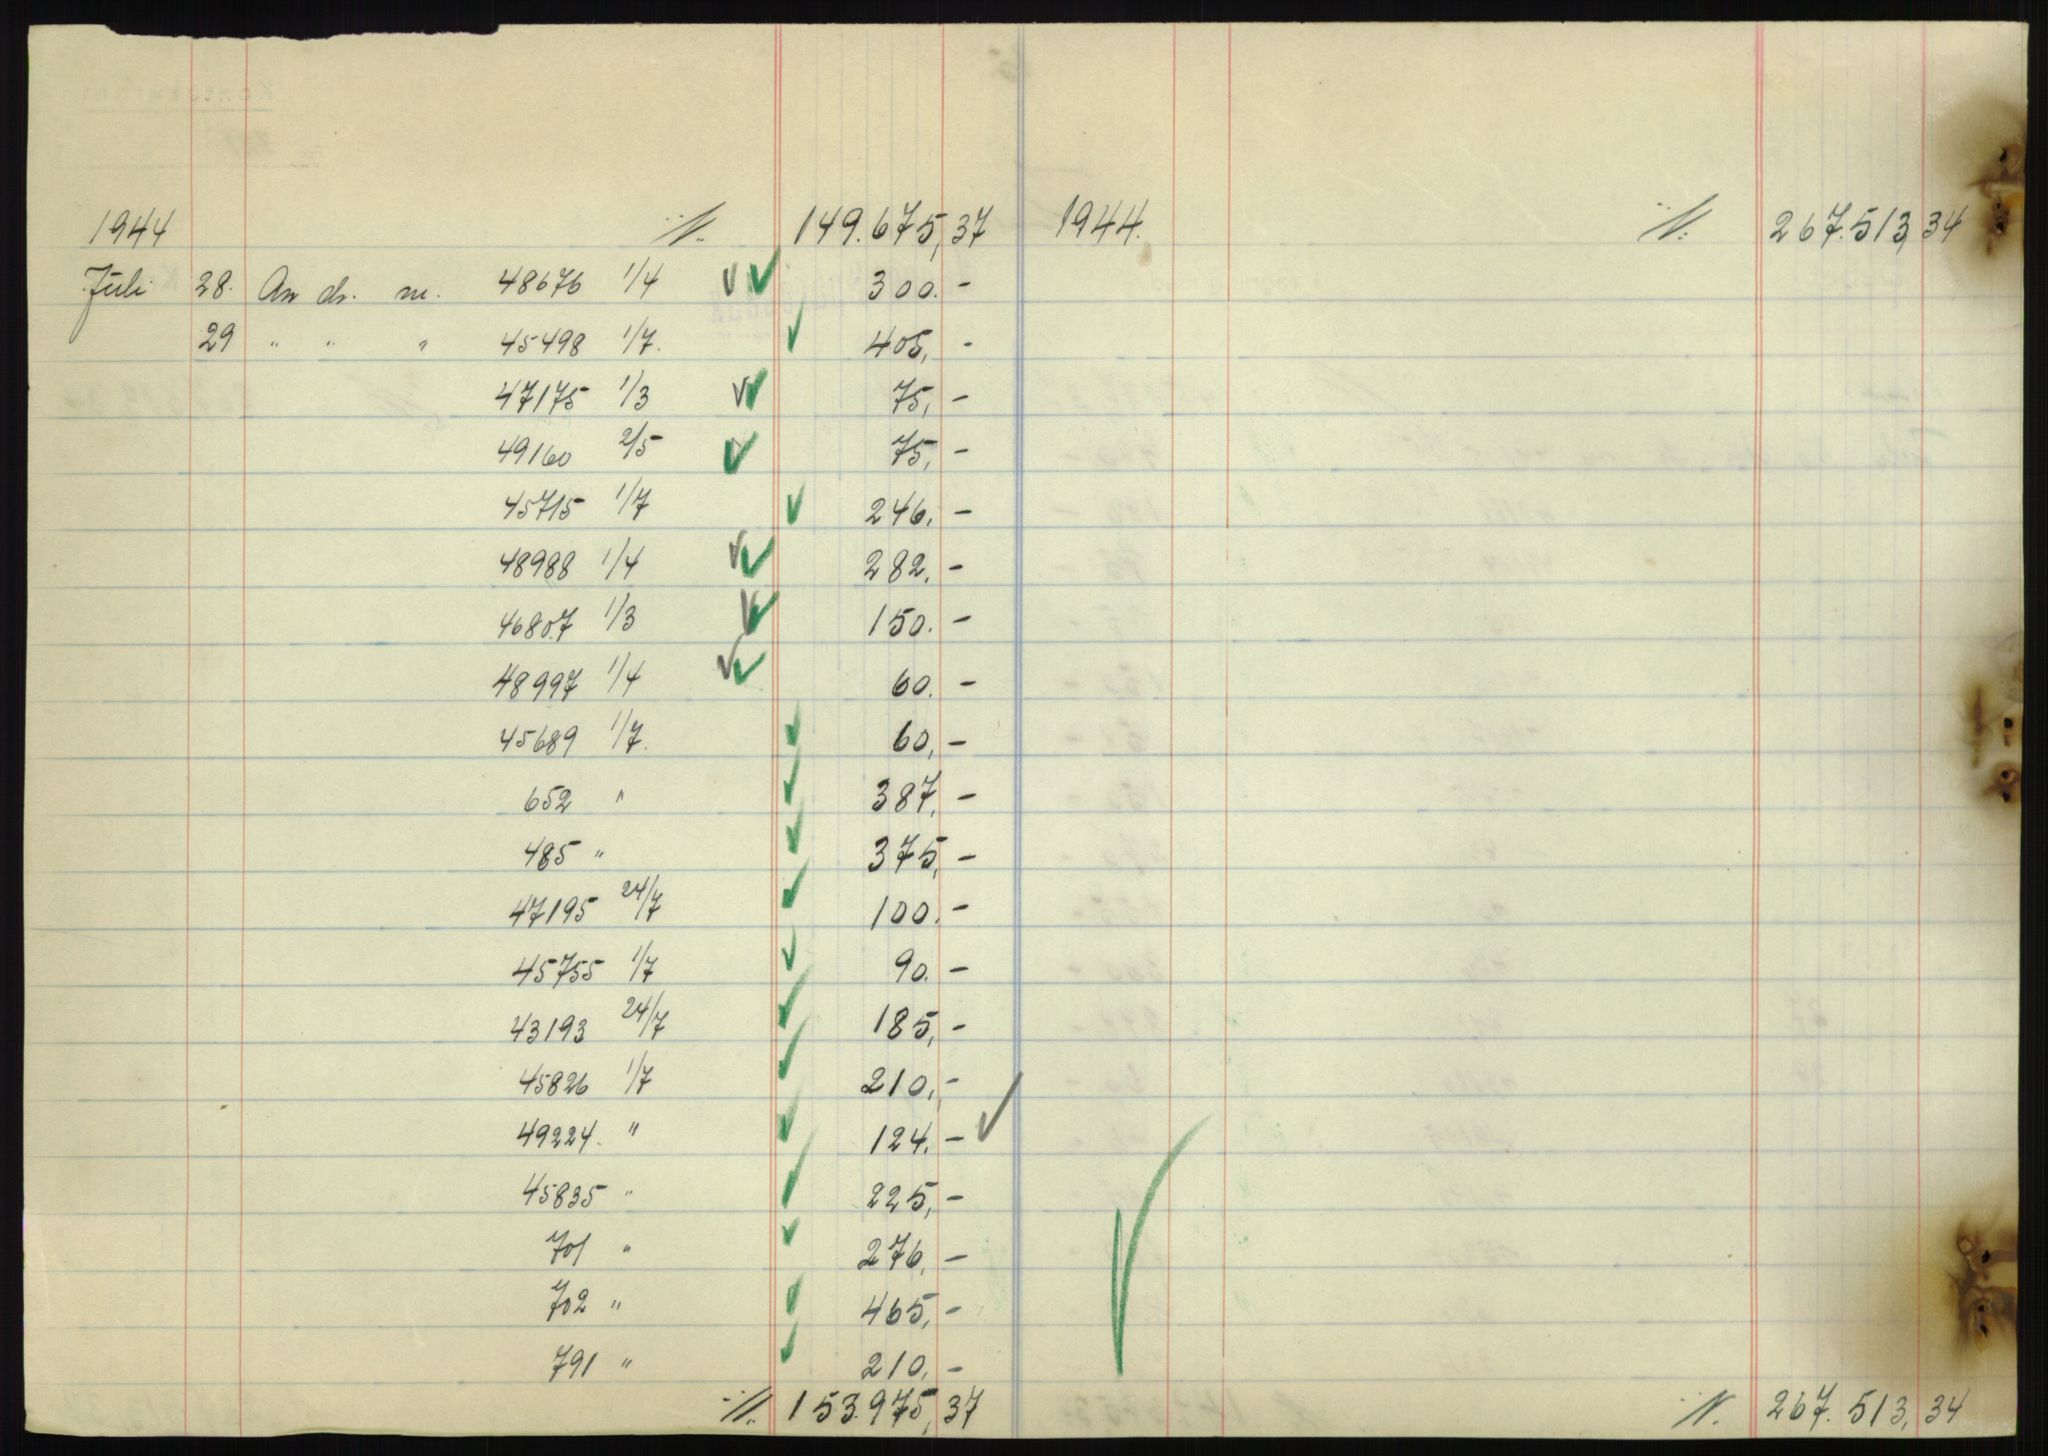 1944 ·/. 149.675,37
Juli 28. An ds. m. 48676 1/4 300.-
29 " " " 45498 1/7. 405,-
47175 1/3 75,-
49160 2/5 75,-
45715 1/7 246,-
48988 1/4 282,-
46807 1/3 150.-
48997 1/4 60.-
45689 1/7. 60,-
652 " 387,-
485 " 375,-
47195 24/7 100.-
45755 1/7 90.-
43193 24/7 185,-
45826 1/7 210,-
49224. " 124.-
45835 " 225,-
701 " 276,-
702 " 465,-
791 " 210,-
·/. 153.975,37
1944. ·/. 267.513,34
·/. 267.513,34